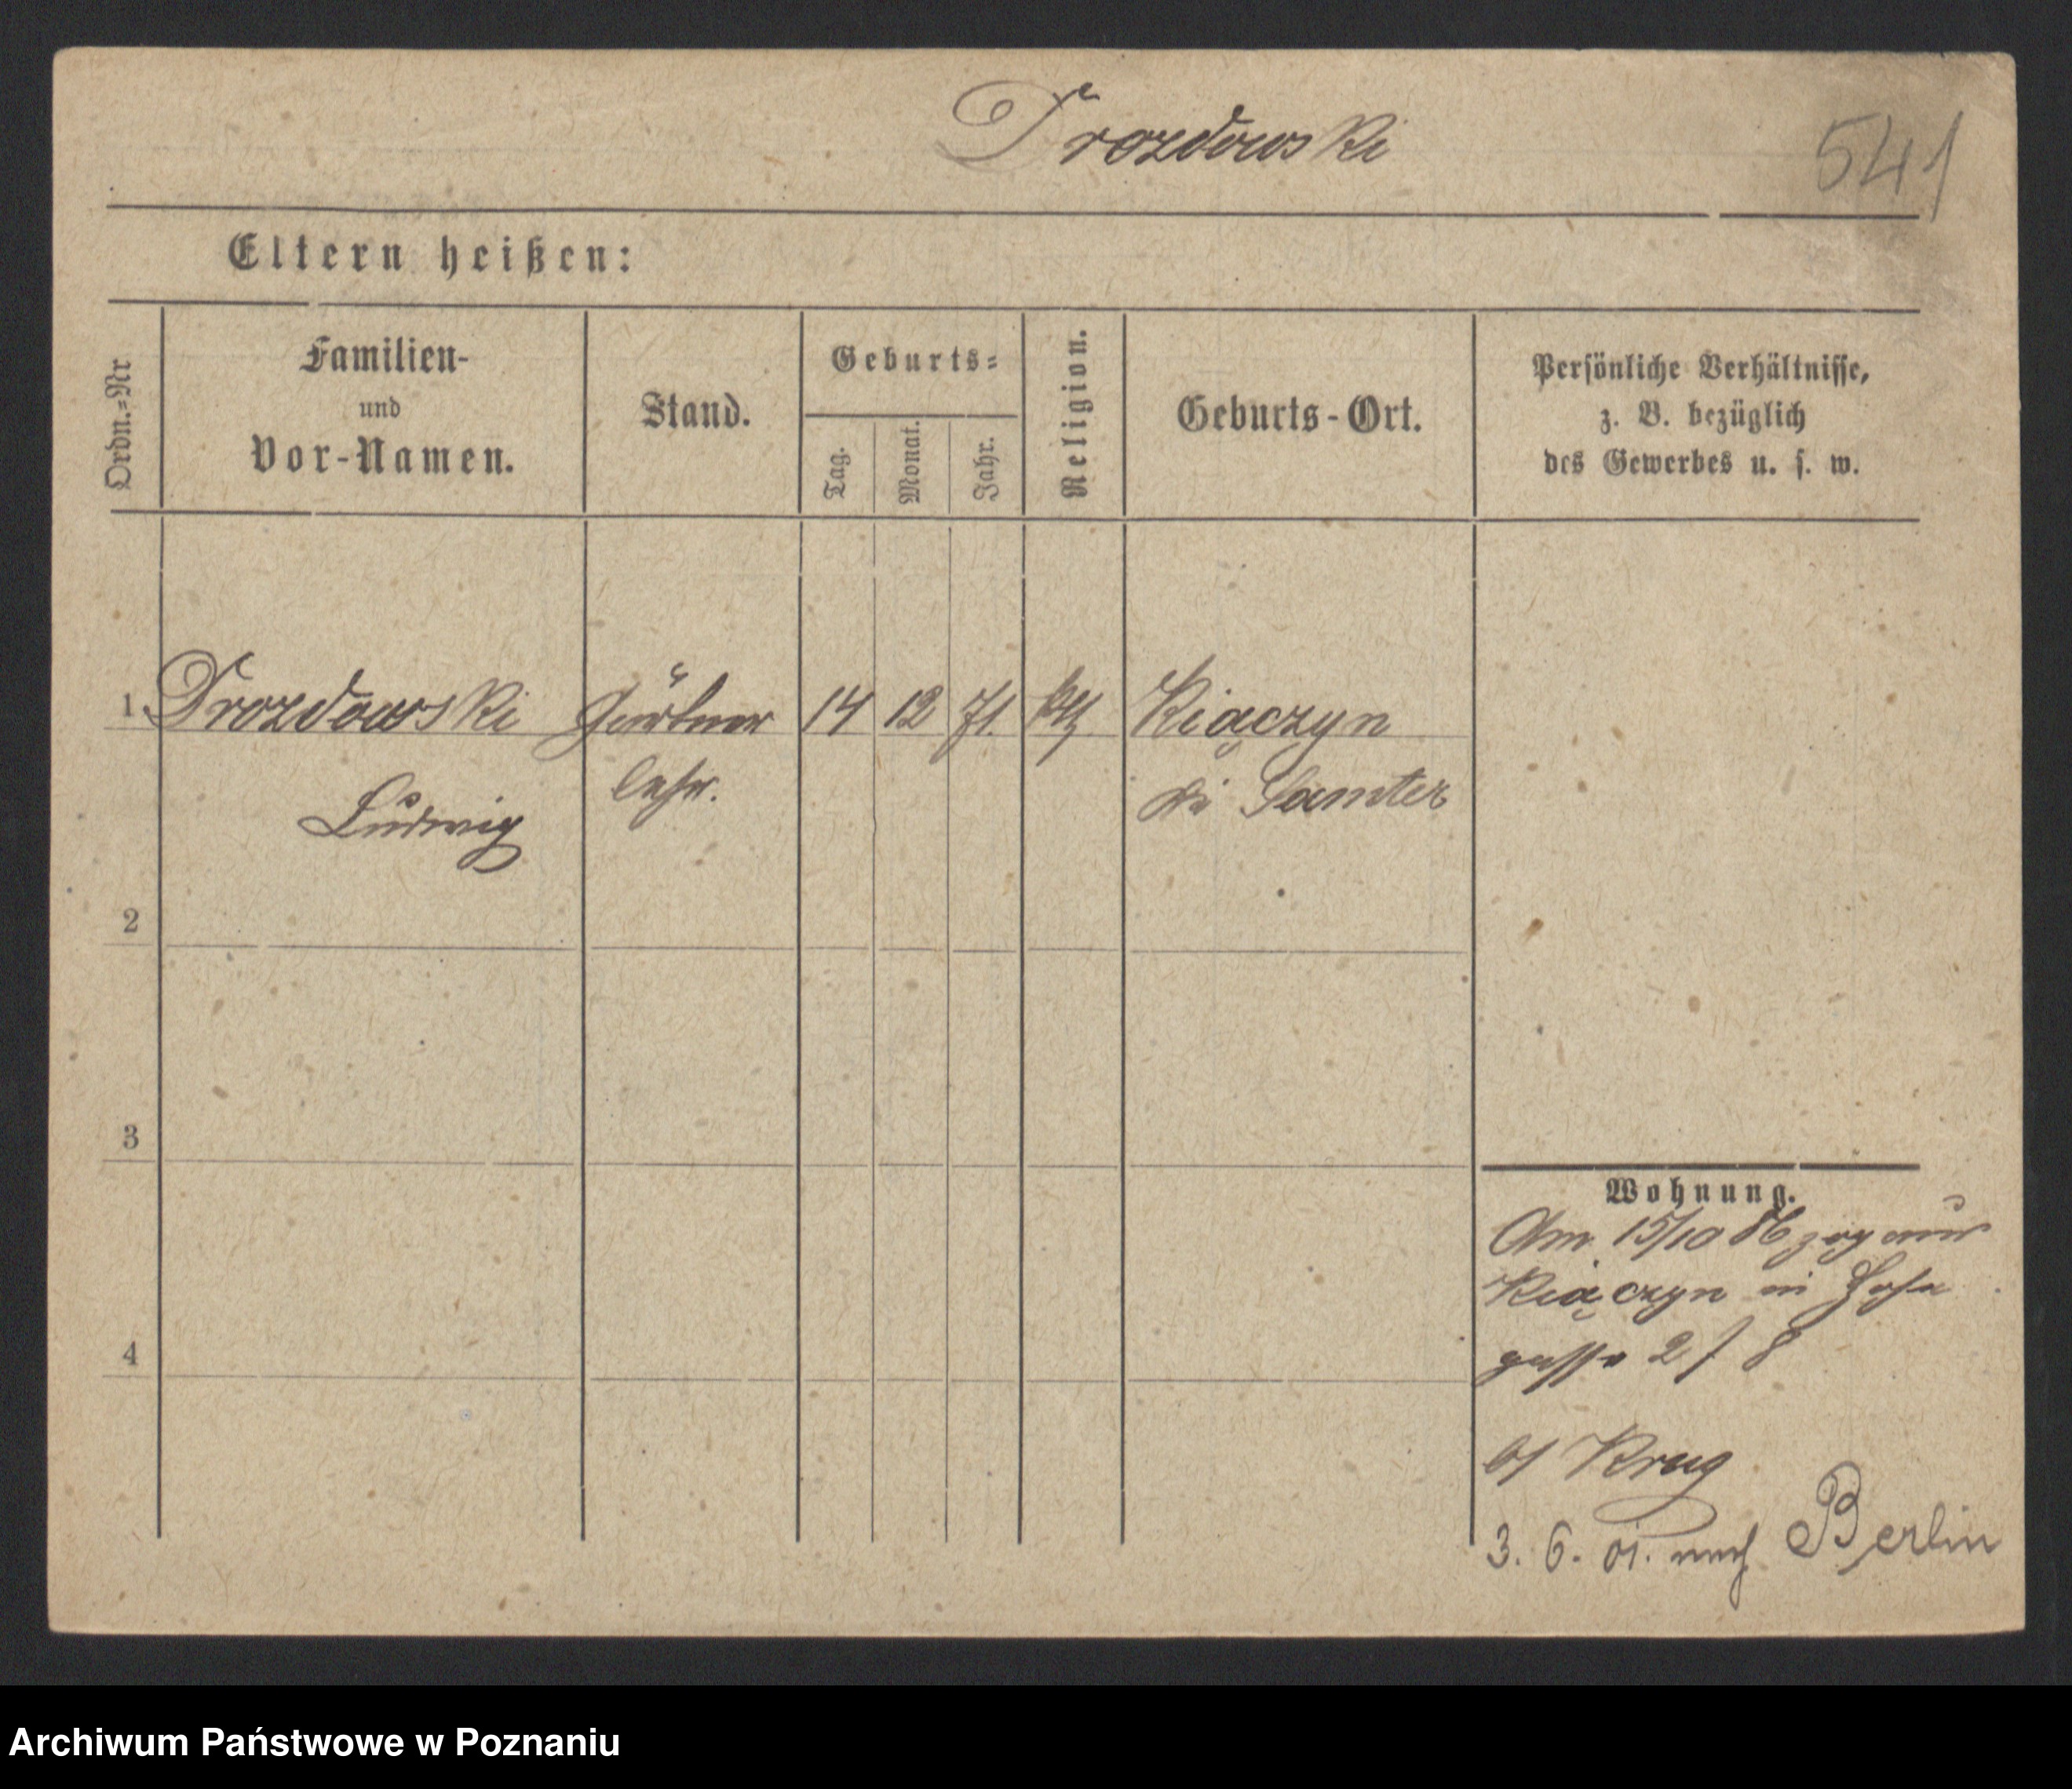 Drozdowski
541
Eltern heißen:
Ordn.=Nr
Familien-
und
Vor-Namen.
Stand.
Geburts=
Tag.
Monat.
Jahr.
Religion.
Geburts-Ort.
Persönliche Verhältnisse,
z. B. bezüglich
des Gewerbes u. s. w.
1. Drozdowski Gärtner 14 12 71. kth Kiączyn
Ludwig lehr. Samter
2
3
4
Wohnung.
Am 15/10 86 zog aus
Kiączyn in
gasse 2 / 8
b/ Krug
3. 6. 01. nach Berlin
Archiwum Państwowe w Poznaniu